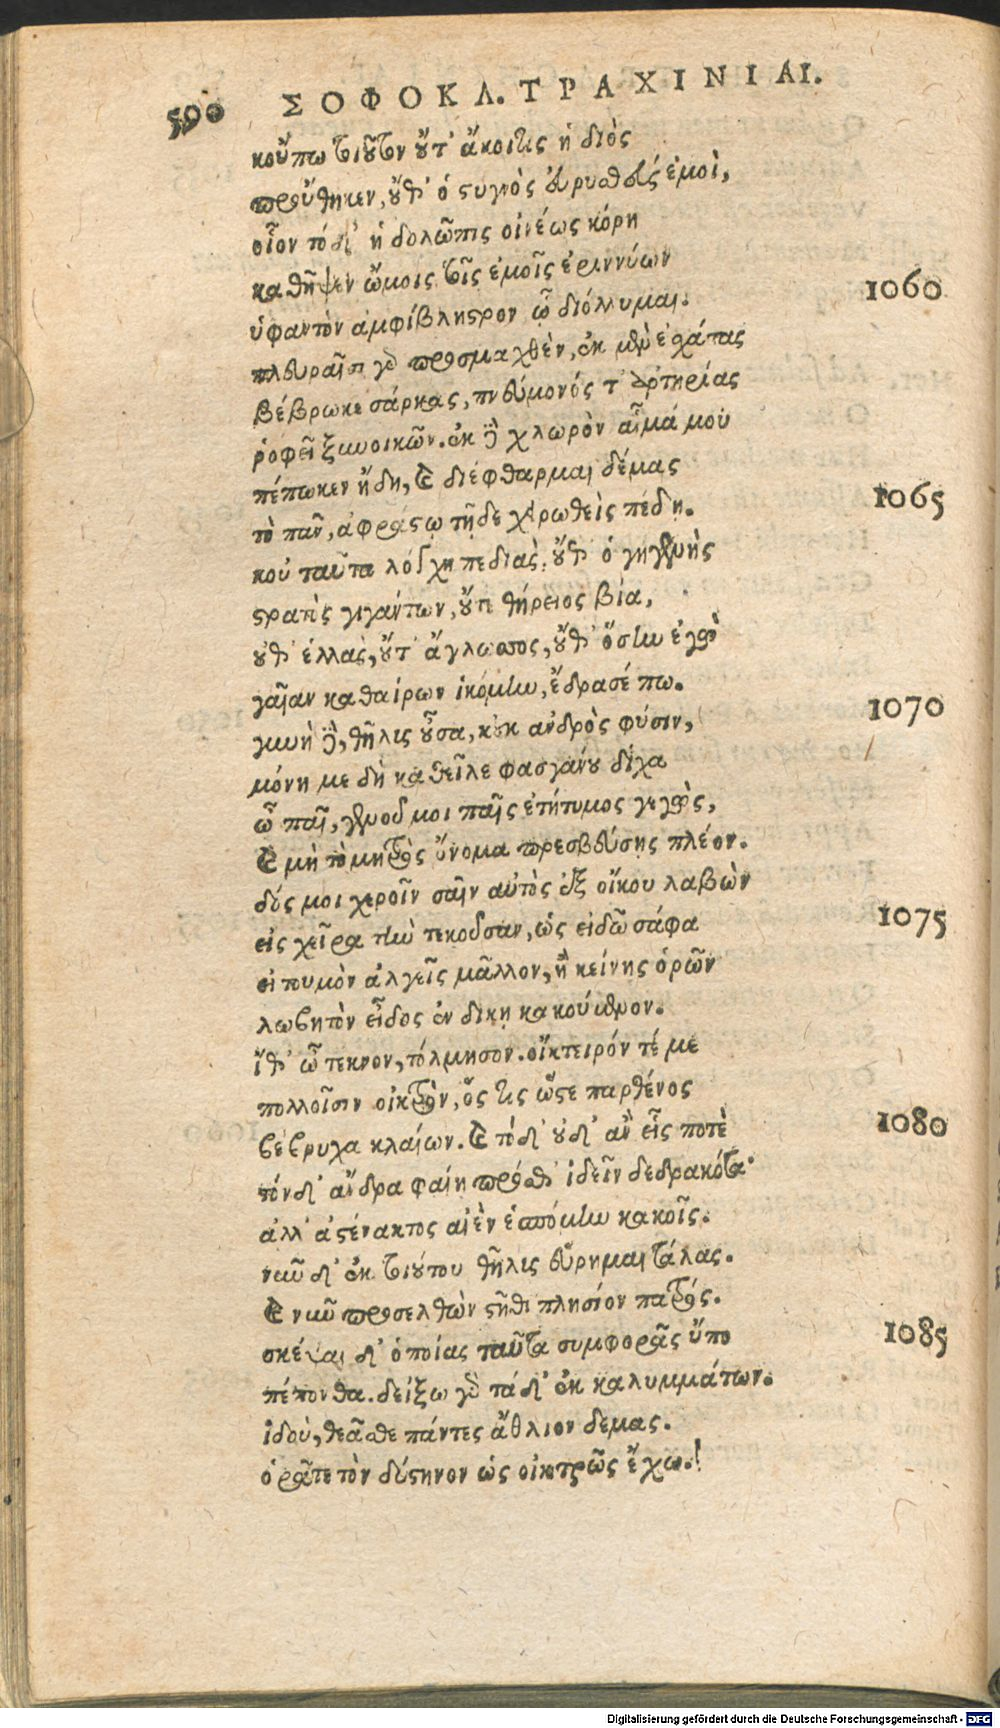 590 ΣΟΦΟΚΛ. ΤΡΑΧΙΝΙΑΙ.
κοὔπω τιοῦτον οὔτ' ἄκοιτις ἡ διὸς
προὔθηκεν, οὔθ' ὁ στυγνὸς εὐρυσθεύς ἐμοὶ,
οἷον τόδ' ἡ δολῶπις οἰνέως κόρη
καθῆψεν ὤμοις τοῖς ἐμοῖς ἐριννύων 1060
ὑφαντὸν ἀμφίβληστρον ᾧ διόλλυμαι.
πλευραῖσι γὰρ προσμαχθὲν, ἐκ μὲν ἐσχάτας
βέβρωκε σάρκας, πνεύμονός τ' ἀρτηρίας
ῥοφεῖ ξυνοικῶν. ἐκ δὲ χλωρὸν αἷμά μου
πέπωκεν ἤδη, καὶ διέφθαρμαι δέμας 1065
τὸ πᾶν, ἀφράστῳ τῇδε χειρωθεὶς πέδῃ.
κοὐ ταῦτα λόγχη πεδιὰς, οὔθ' ὁ γηγενὴς
στρατὸς γιγάντων, οὔτε θήρειος βία,
οὔθ' ἑλλὰς, οὔτ' ἄγλωσσος, οὔθ' ὅσην ἐγὼ
γαῖαν καθαίρων ἱκόμην, ἔδρασέ πω. 1070
γυνὴ δὲ, θῆλις οὖσα, κοὐκ ἀνδρὸς φύσιν,
μόνη με δὴ καθεῖλε φασγάνου δίχα
ὦ παῖ, γενοῦ μοι παῖς ἐτήτυμος γεγὼς,
καὶ μὴ τὸ μητρὸς ὄνομα πρεσβεύσης πλέον.
δός μοι χεροῖν σαῖν αὐτὸς ἐξ οἴκου λαβὼν 1075
εἰς χεῖρα τὴν τεκοῦσαν, ὡς εἰδῶ σάφα
εἰ τουμὸν ἀλγεῖς μᾶλλον, ἢ κείνης ὁρῶν
λωβητὸν εἶδος ἐν δίκῃ κακούμενον.
ἴθ' ὦ τέκνον, τόλμησον. οἴκτειρόν τέ με
πολλοῖσιν οἰκτρὸν, ὅς τις ὥστε παρθένος 1080
βέβρυχα κλαίων. καὶ τόδ' οὐδ' ἂν εἷς ποτὲ
τόνδ' ἄνδρα φαίη πρόσθ' ἰδεῖν δεδρακότα·
ἀλλ' ἀστένακτος αἰὲν ἑσπόμην κακοῖς.
νῦν δ' ἐκ τιούτου θῆλις εὕρημαι τάλας.
καὶ νῦν προσελθὼν στῆθι πλησίον πατρός. 1085
σκέψαι δ' ὁποίας ταῦτα συμφορᾶς ὕπο
πέπονθα. δείξω γὰρ τάδ' ἐκ καλυμμάτων.
ἰδοὺ, θεᾶσθε πάντες ἄθλιον δέμας.
ὁρᾶτε τὸν δύστηνον ὡς οἰκτρῶς ἔχω.
Digitalisierung gefördert durch die Deutsche Forschungsgemeinschaft - DFG